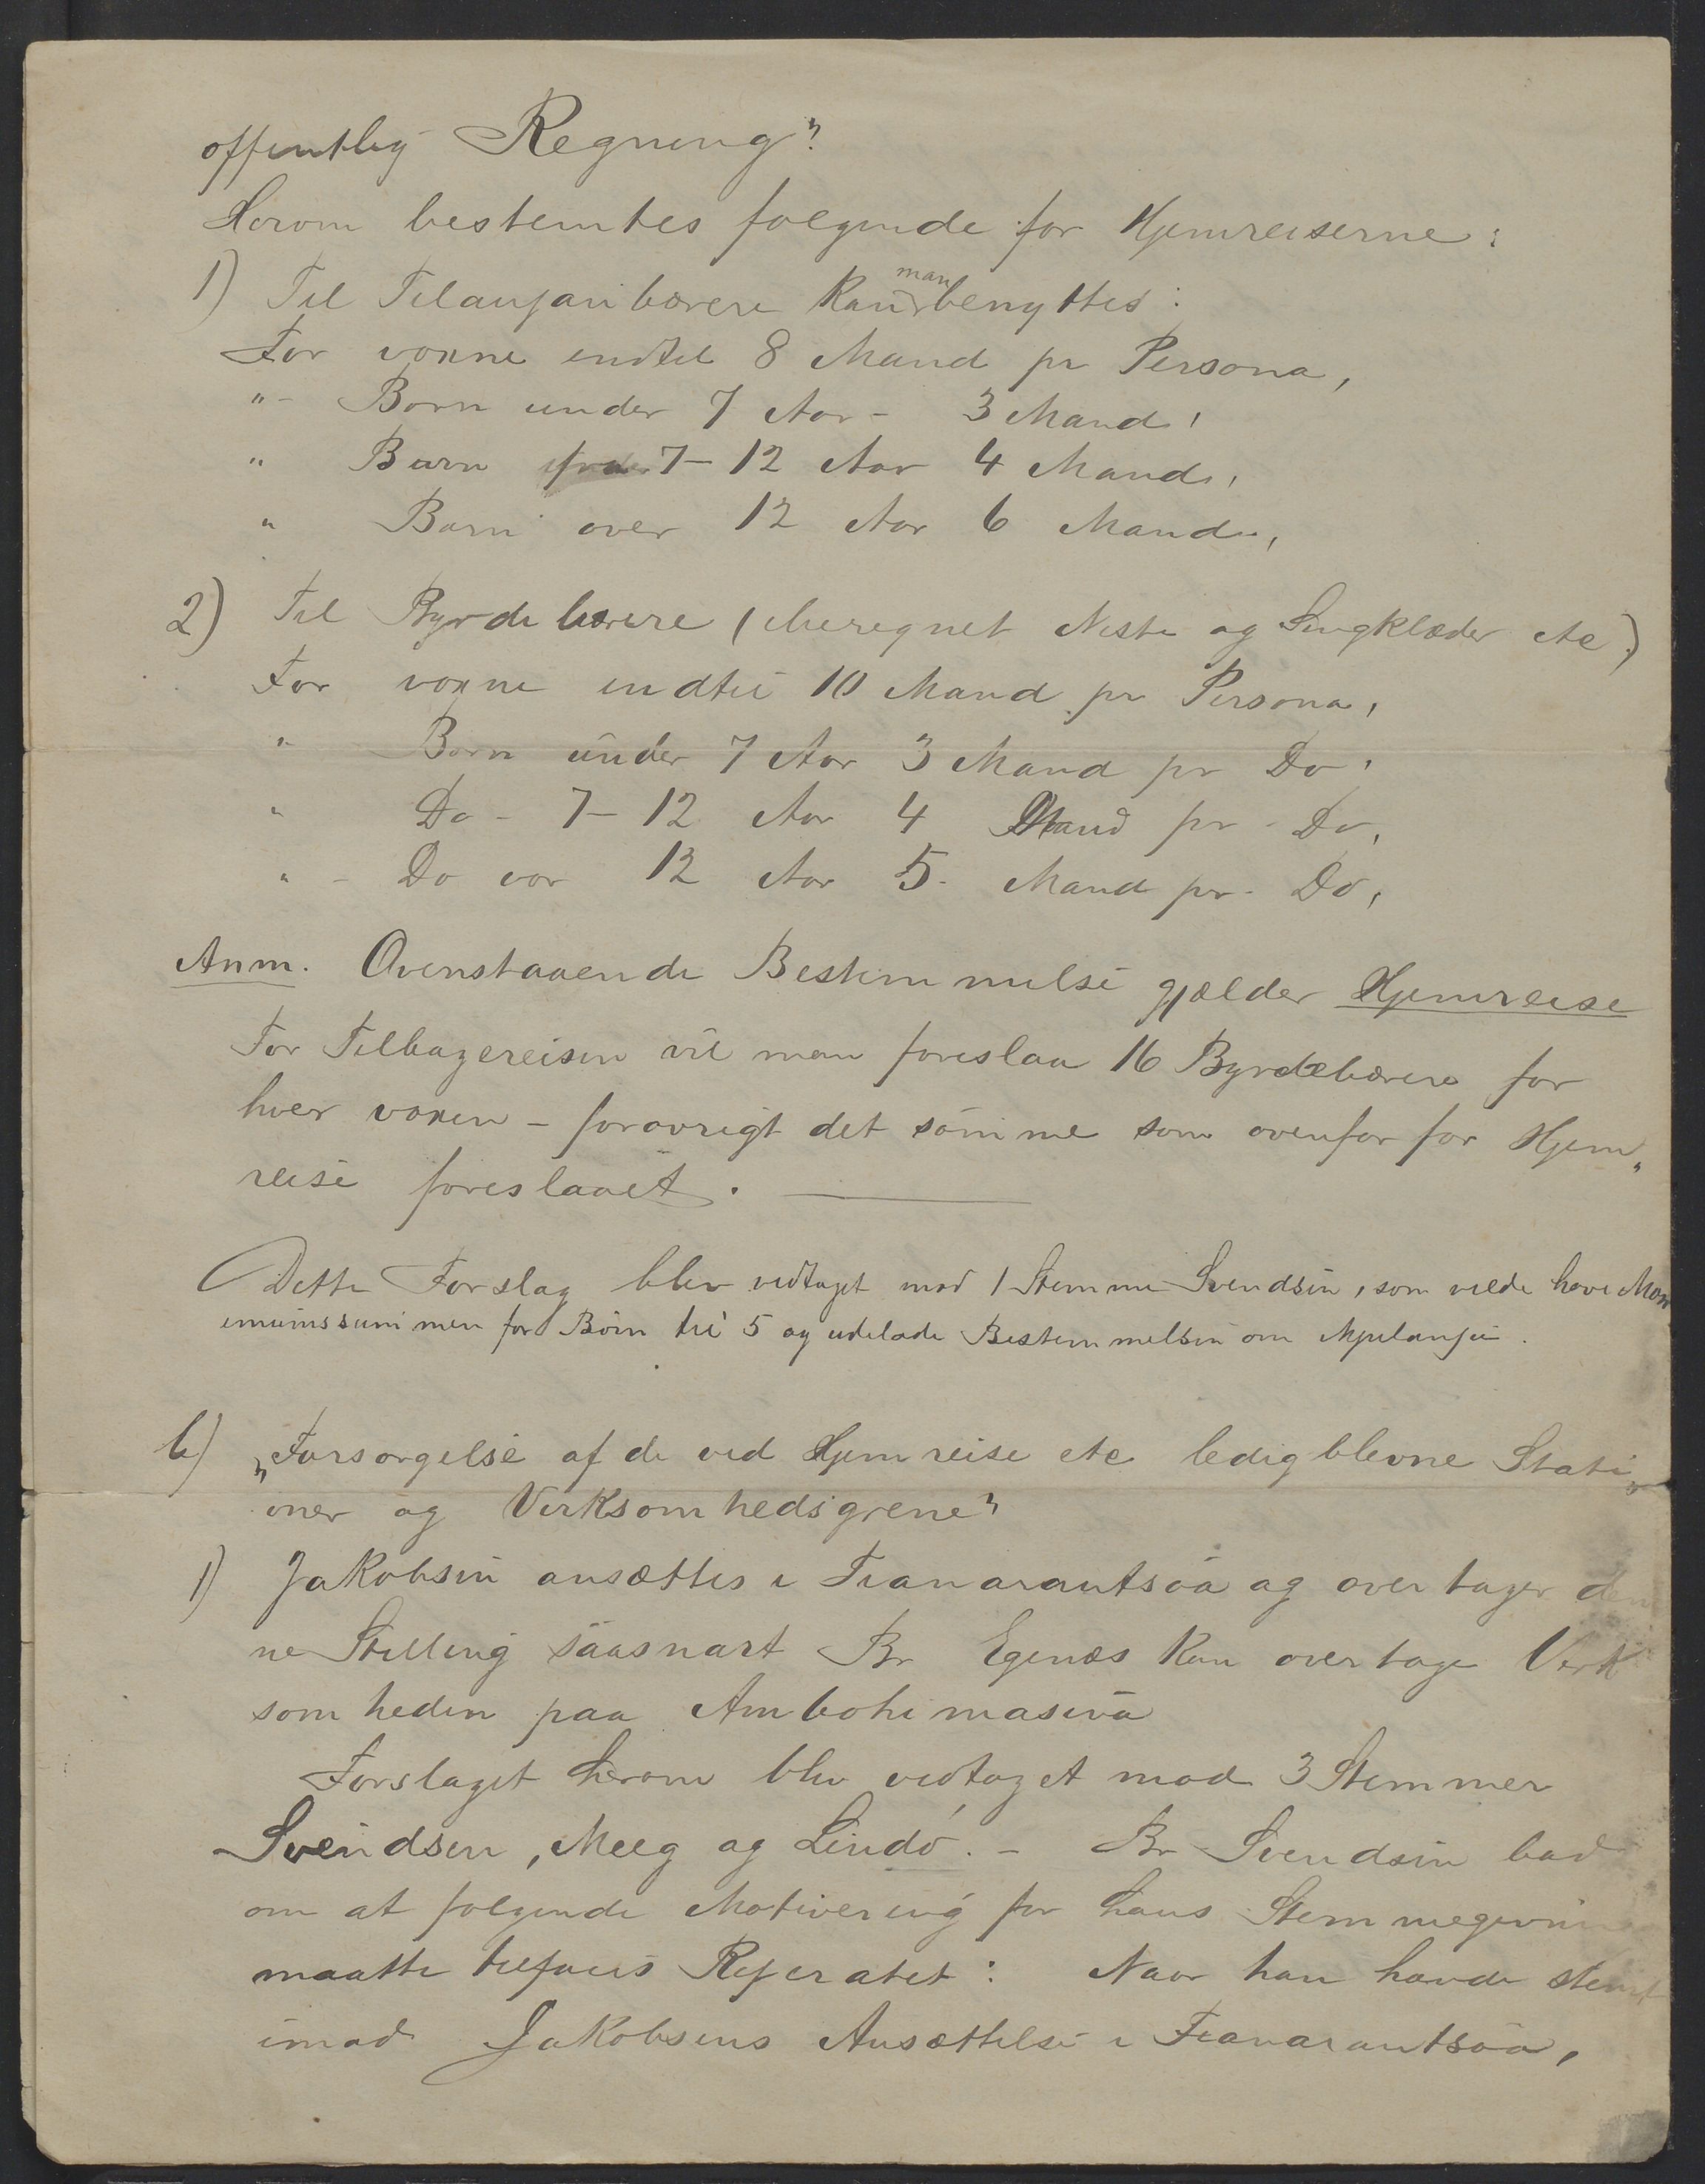 offentlig Regning"?
Herom bestemtes følgende for Hjemreiserne:
1) Til Filanjanbærere kan man benyttes:
For voxne indtil 8 Mand pr Persona,
" - Børn under 7 Aar - 3 Mand,
" Børn fra 7-12 Aar 4 Mand,
" Børn over 12 Aar 6 Mand,
2) Til Byrdebærere (iberegnet Niste og Sengklæder etc)
For voxne indtil 10 Mand pr Persona,
" Børn under 7 Aar 3 Mand pr Do,
" Do - 7-12 Aar 4 Mand pr - Do,
" - Do over 12 Aar 5 - Mand pr - Do,
Anm. Ovenstaaende Bestemmelse gjælder Hjemreise
For Tilbagereisen vil man foreslaa 16 Byrdebærere for
hver voxen - forøvrigt det samme som ovenfor for Hjem„
reise foreslaaet.
Dette Forslag blev vedtaget mod 1 Stemme Svendsen, som vilde have Max
imumssummen for Børn til 5 og udelade Bestemmelsen om
6) „Forsørgelse af de ved Hjemreise etc ledigblevne Stati„
oner og Virksomhedsgrene"
1) Jakobsen ansættes i Fianarantsoa og overtager den
ne Stilling saasnart Br Egenæs kan overtage Virk
somheden paa Ambohimasina
Forslaget herom blev vedtaget mod 3 Stemmer
Svendsen, Meeg og Lindø. - Br Svendsen bad
om at følgende Motivering for hans Stemmegivning
maatte tilføies Referatet: Naar han havde stemt
imod Jakobsens Ansættelse i Fianarantsoa,